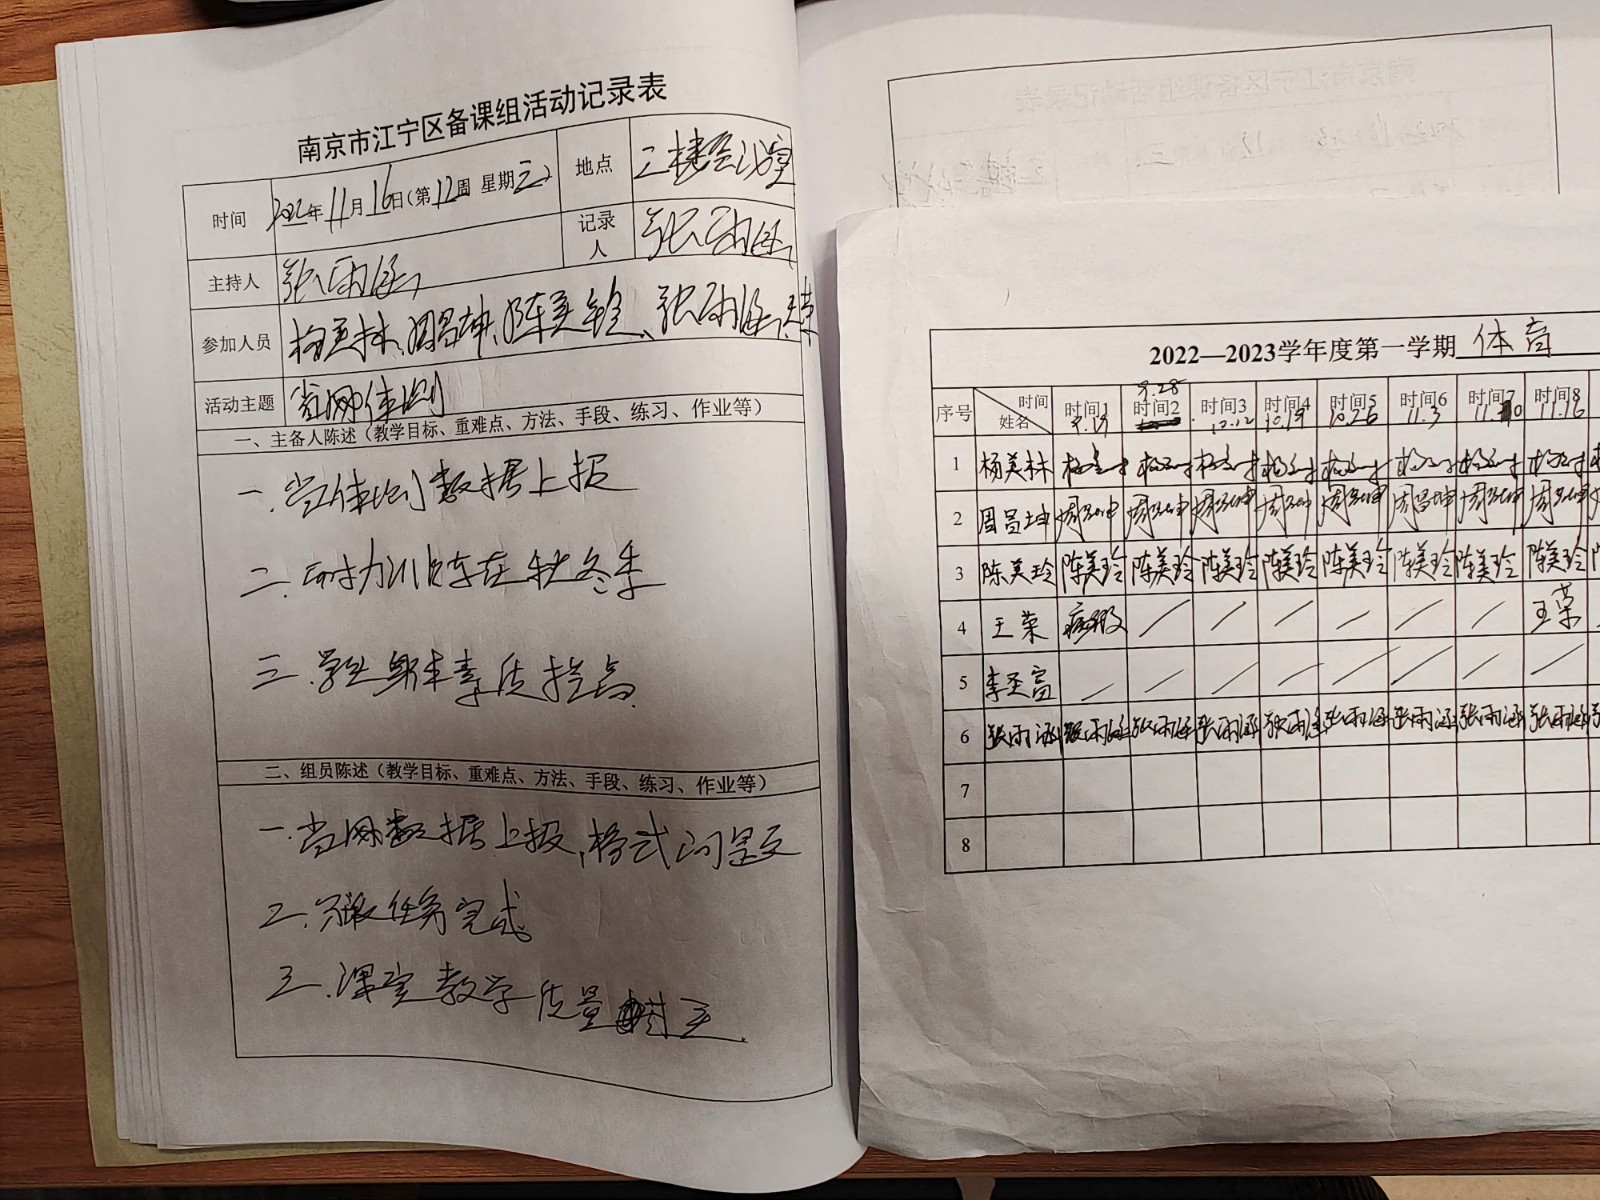 南京市江宁区备课组活动记录表
时间 2022年11月16日(第12周 星期三) 地点 二楼会议室
主持人 张雨涵 记录人 张雨涵
参加人员 杨美林、周昌坤、陈美玲、张雨涵、王荣
活动主题 省网体测
一、主备人陈述（教学目标、重难点、方法、手段、练习、作业等）
一.省体测数据上报
二.耐力训练在秋冬季
三.学生身体素质提高
二、组员陈述（教学目标、重难点、方法、手段、练习、作业等）
一.省网数据上报,格式问题
二.任务完成
三.课堂教学质量
2022—2023学年度第一学期 体育
序号 时间 姓名 时间1 时间2 时间3 时间4 时间5 时间6 时间7 时间8
9.28 10.12 10.19 10.26 11.3 11.10 11.16
1 杨美林 杨美林 杨美林 杨美林 杨美林 杨美林 杨美林 杨美林 杨美林
2 周昌坤 周昌坤 周昌坤 周昌坤 周昌坤 周昌坤 周昌坤 周昌坤 周昌坤
3 陈美玲 陈美玲 陈美玲 陈美玲 陈美玲 陈美玲 陈美玲 陈美玲 陈美玲
4 王荣 病假 / / / / / / 王荣
5 李圣富 / / / / / / / /
6 张雨涵 张雨涵 张雨涵 张雨涵 张雨涵 张雨涵 张雨涵 张雨涵 张雨涵
7
8